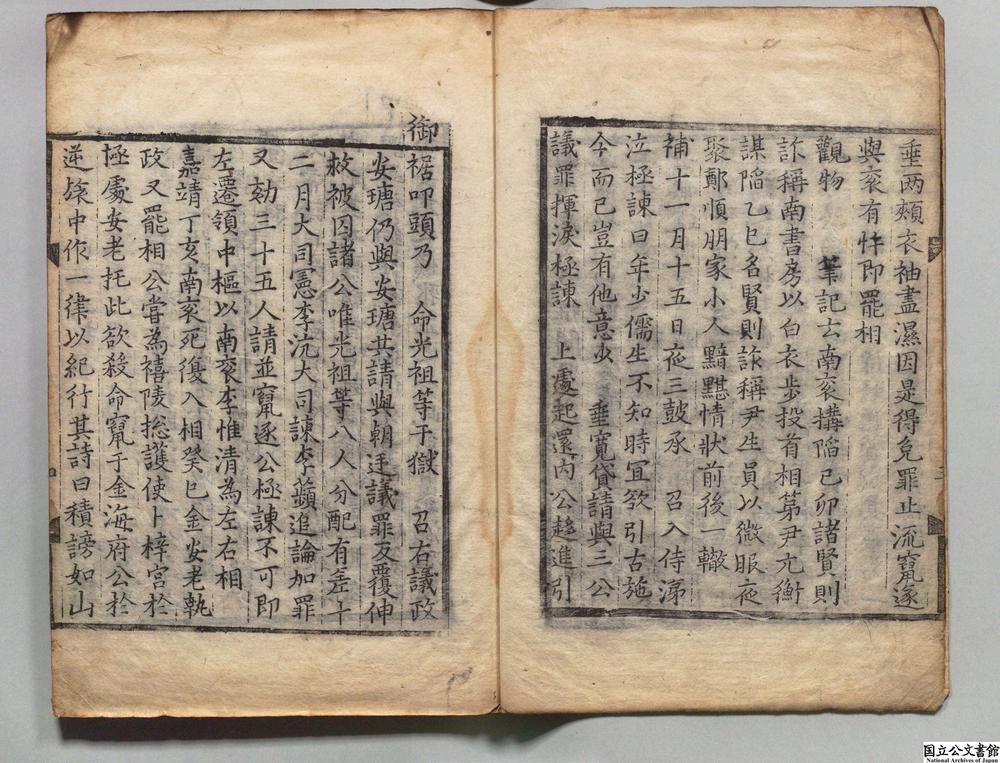 垂两頰衣袖盡濕因是得免罪止流竄遂
與衮有忤即罷相
觀物　筆記云南衮搆陷己卯諸賢則
詐稱南書房以白衣步投首相第尹元衡
謀陷乙巳名賢則詐稱尹生員以微服夜
聚鄭順朋家小人黯黮情狀前後一轍
補十一月十五日夜三鼓承　召入侍涕
泣極諫曰年少儒生不知時冝欲引古施
今而已豈有他意少　垂寛貸請與三公
議罪揮淚極諫　上處起還内公趍進引
御裾叩頭乃　命光祖等于獄　召右議政
安瑭仍與安瑭共請與朝廷議罪反覆伸
救被囚諸公唯光祖等八人分配有差十
二月大司憲李沆大司諫李蘋追論加罪
又劾三十五人請並竄逐公極諫不可即
左遷領中樞以南衮李惟清為左右相
嘉靖丁亥南衮死復入相癸巳金安老執
政又罷相公甞為禧陵捴護使卜梓宫於
極處安老托此欲殺命竄于金海府公於
逆旅中作一律以紀行其詩曰積謗如山
国立公文書館
National Archives of Japan